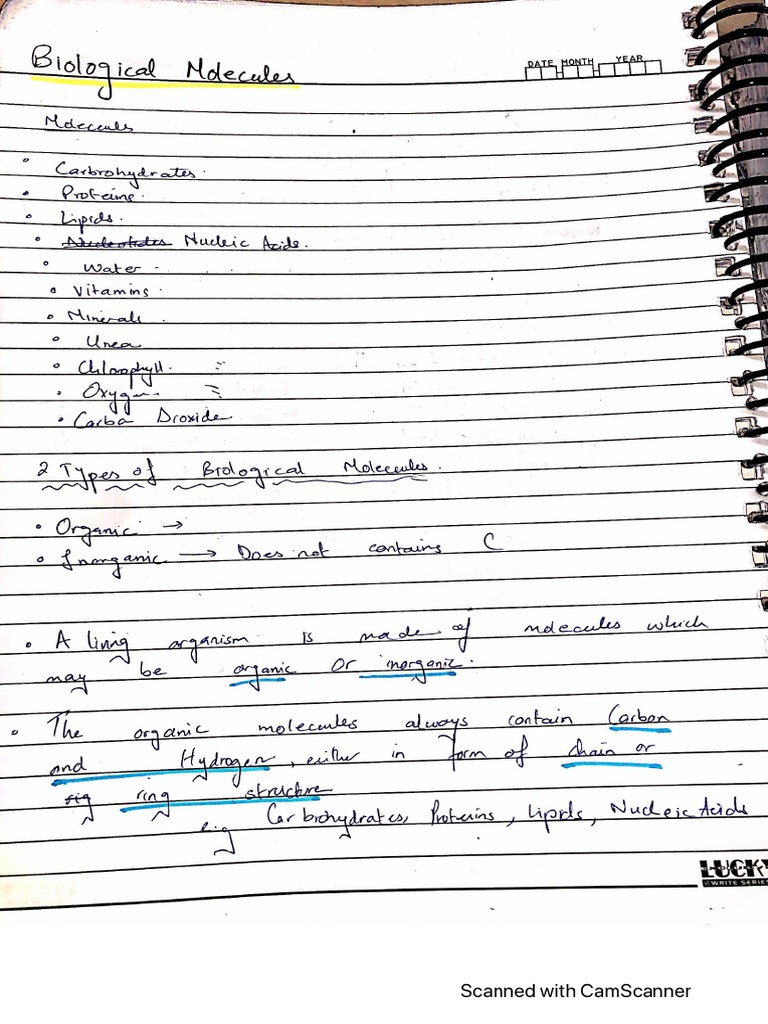 Biological Molecules
DATE MONTH YEAR
Molecules
• Carbrohydrates.
• Proteins.
• Lipids.
• Nucleotides Nucleic Acids.
• Water.
• Vitamins.
• Minerals.
• Urea
• Chlorophyll.
• Oxygen
• Carbo Dioxide
2 Types of Biological Molecules.
• Organic →
• Inorganic → Does not contains C
• A living organism is made of molecules which
may be organic or inorganic.
• The organic molecules always contain Carbon
and Hydrogen, either in form of chain or
rig ring structure
e.g Carbohydrates, Proteins, Lipids, Nucleic Acids
LUCKY
WRITE SERIES
Scanned with CamScanner